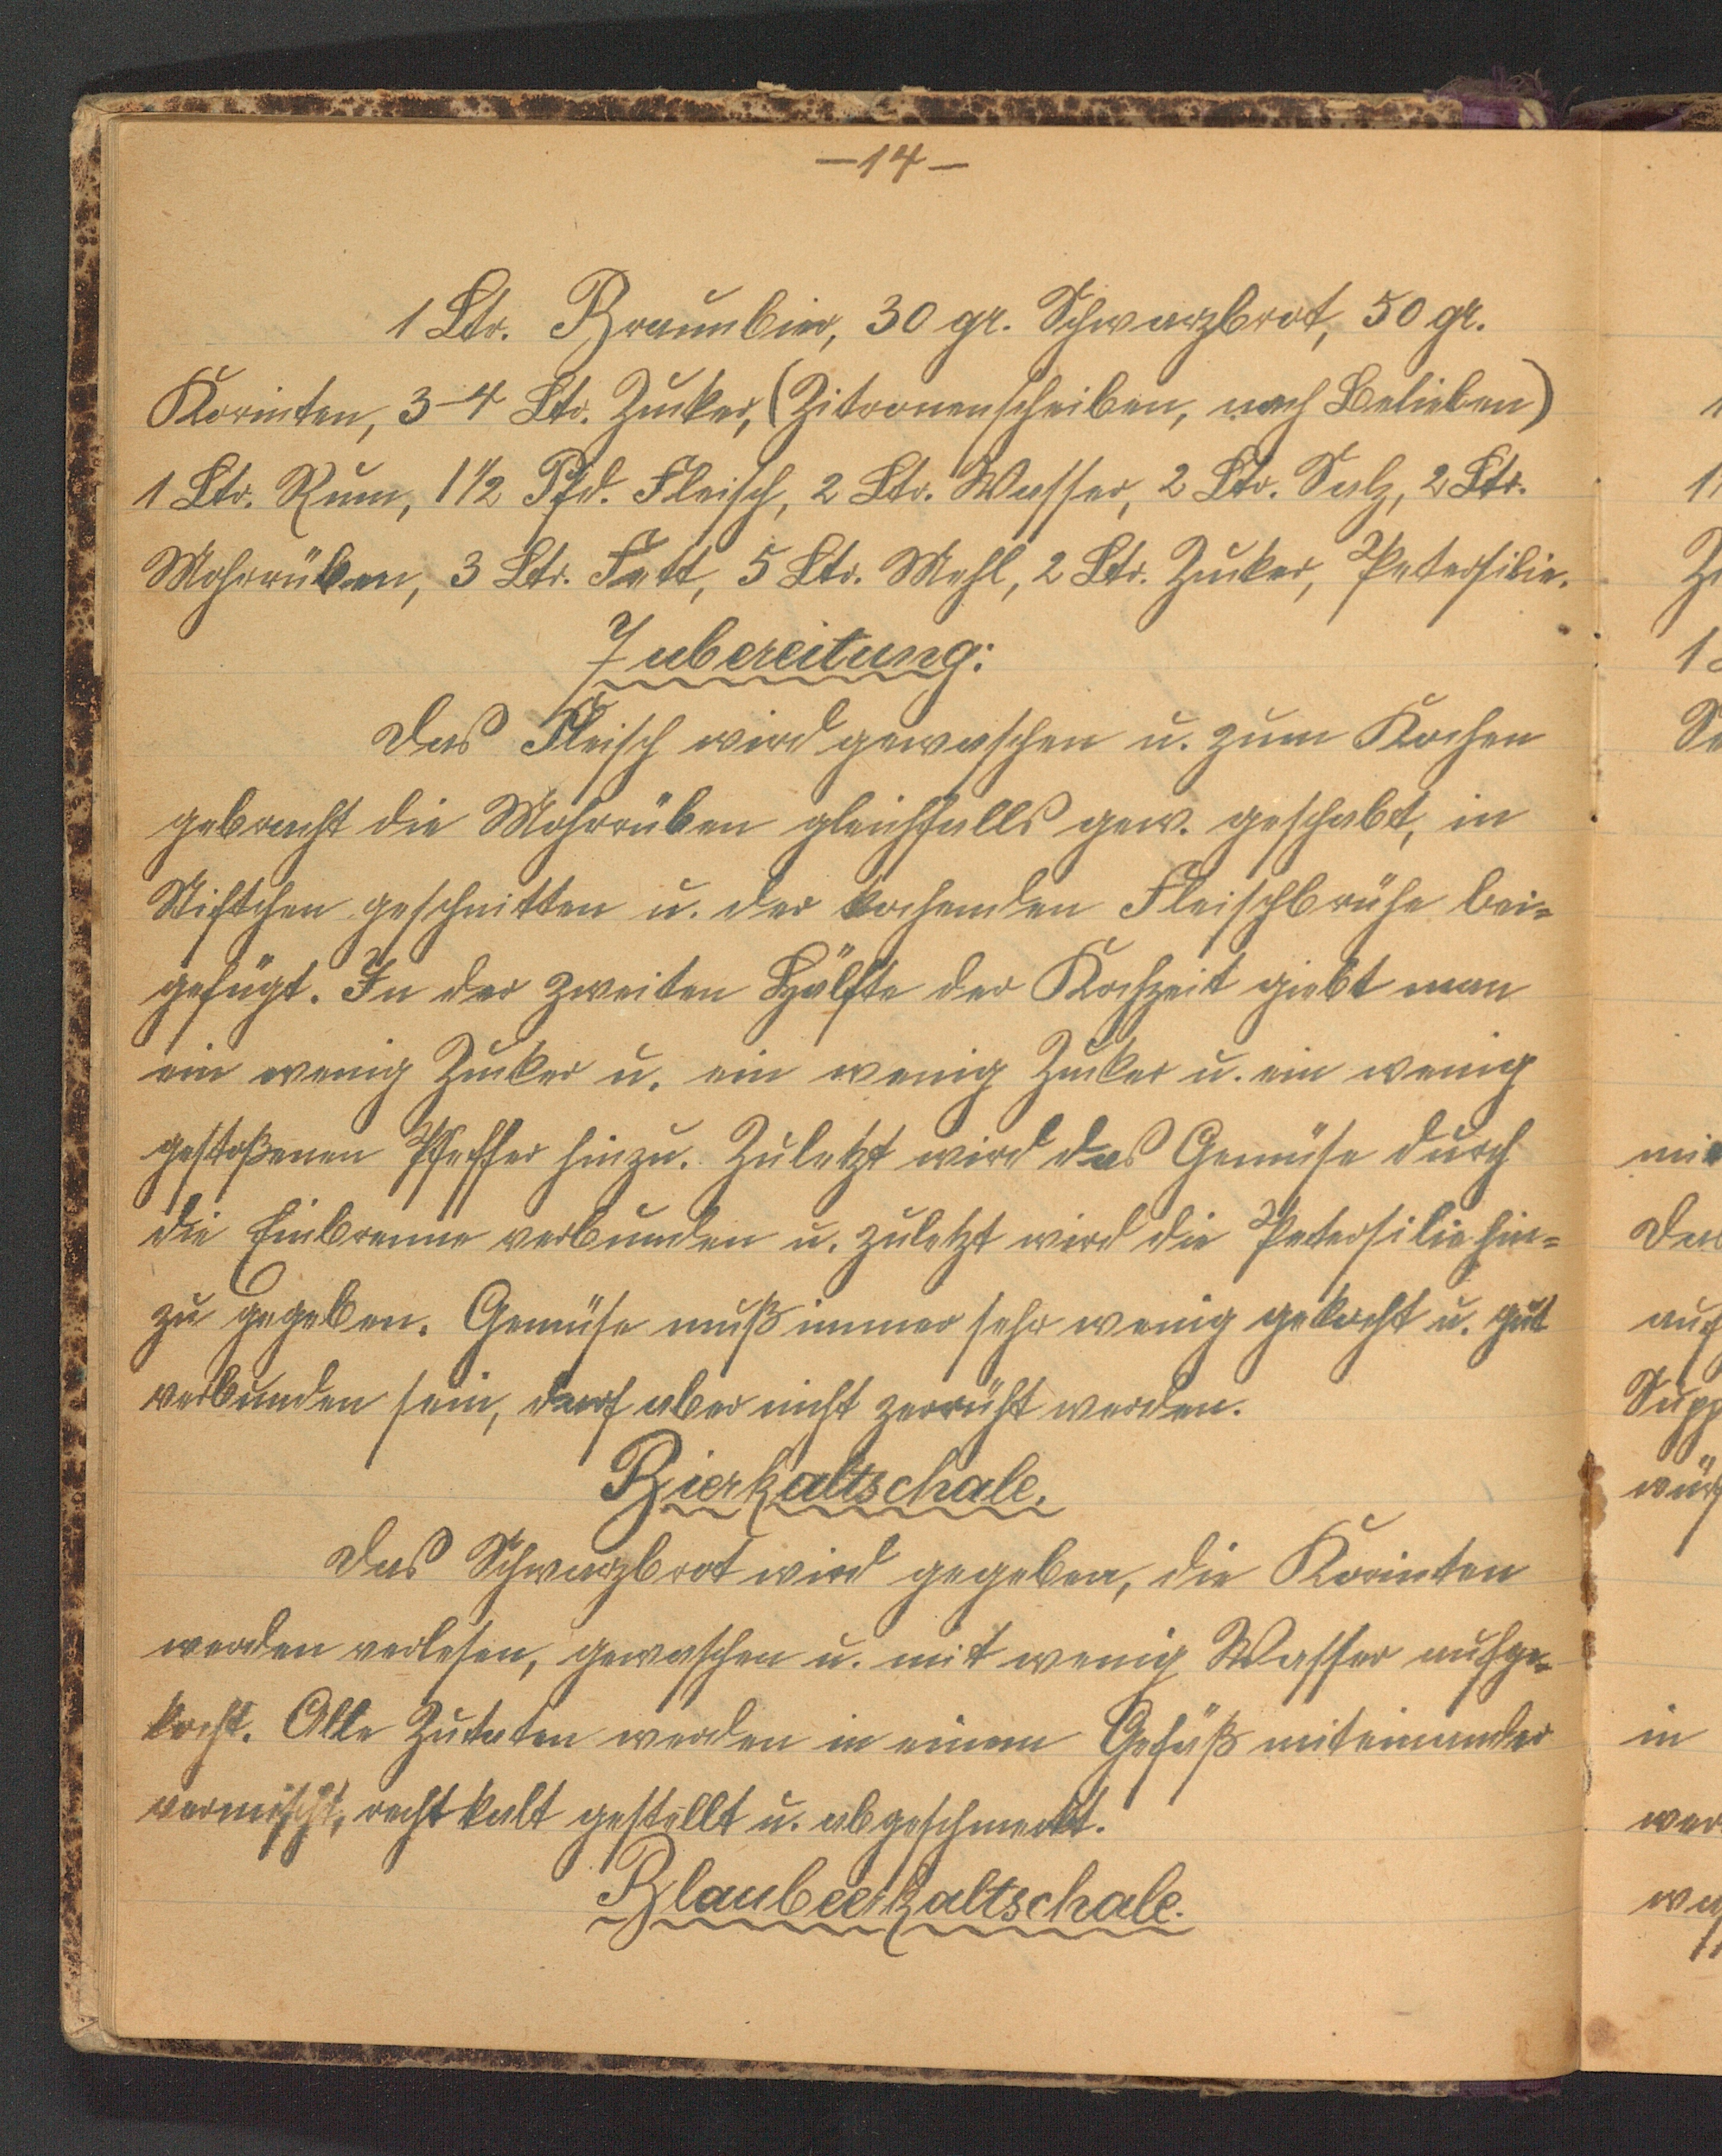 —14—
1 Ltr. Braunbier, 30 gr. Schwarzbrot, 50 gr.
Korinten, 3-4 Ltr. Zucker, (Zitronenscheiben, nach Belieben)
1 Ltr. Rum, 1 1/2 Pfd. Fleisch, 2 Ltr. Wasser, 2 Ltr. Salz, 2 Ltr.
Mohrrüben, 3 Ltr. Fett, 5 Ltr. Mehl, 2 Ltr. Zucker, Petersilie.
Zubereitung:
Das Fleisch wird gewaschen u. zum Kochen
gebracht die Mohrrüben gleichfalls gew. geschabt, in
Stiftchen geschnitten u. der kochenden Fleischbrühe bei=
gefügt. In der zweiten Hälfte der Kochzeit giebt man
ein wenig Zucker u. ein wenig Zucker u. ein wenig
gestoßenen Pfeffer hinzu. Zuletzt wird das Gemüse durch
die Einbrenne verbunden u. zuletzt wird die Petersilie hin=
zu gegeben. Gemüse muß immer sehr wenig gekocht u. gut
verbunden sein, darf aber nicht zerrüht werden.
Bierkaltschale.
Das Schwarzbrot wird gegeben, die Korinten
werden verlesen, gewaschen u. mit wenig Wasser aufge=
kocht. Alle Zutaten werden in einem Gefäß miteinander
vermischt, recht kalt gestellt u. abgeschmeckt.
Blaubeerkaltschale.